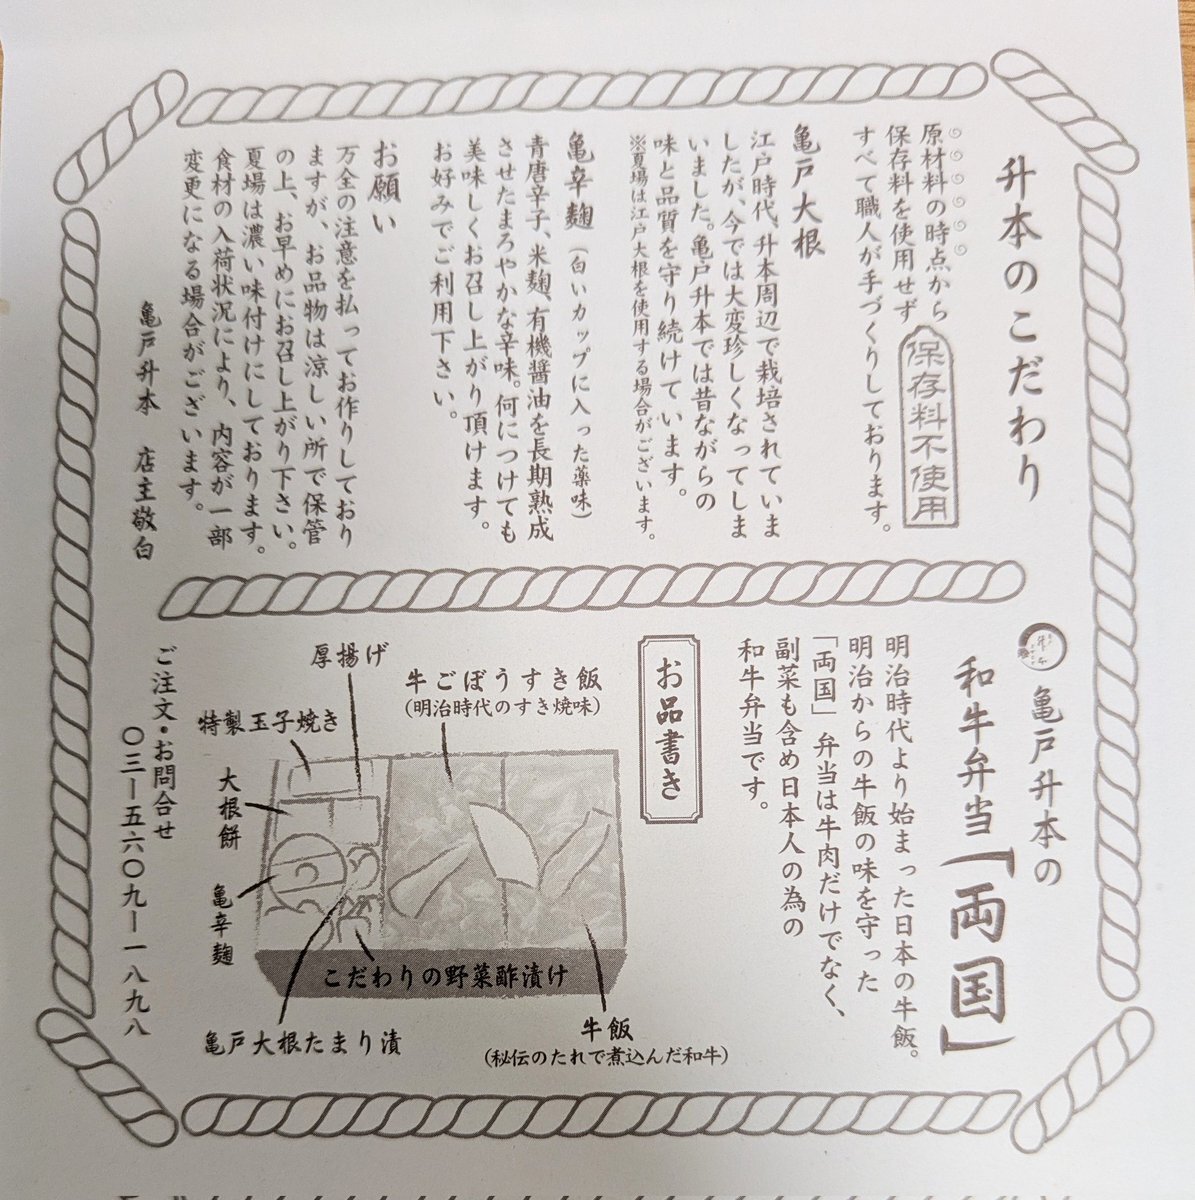 升本のこだわり
原材料の時点から
保存料を使用せず
すべて職人が手づくりしております。
保存料不使用
亀戸大根
江戸時代、升本周辺で栽培されていま
したが、今では大変珍しくなってしま
いました。亀戸升本では昔ながらの
味と品質を守り続けています。
※夏場は江戸大根を使用する場合がございます。
亀辛麹(白いカップに入った薬味)
青唐辛子、米麹、有機醤油を長期熟成
させたまろやかな辛味。何につけても
美味しくお召し上がり頂けます。
お好みでご利用下さい。
お願い
万全の注意を払ってお作りしており
ますが、お品物は涼しい所で保管
の上、お早めにお召し上がり下さい。
夏場は濃い味付けにしております。
食材の入荷状況により、内容が一部
変更になる場合がございます。
亀戸升本 店主敬白
亀戸升本の
和牛弁当「両国」
明治時代より始まった日本の牛飯。
明治からの牛飯の味を守った
「両国」弁当は牛肉だけでなく、
副菜も含め日本人の為の
和牛弁当です。
お品書き
牛ごぼうすき飯
(明治時代のすき焼味)
厚揚げ
特製玉子焼き
大根餅
亀辛麹
こだわりの野菜酢漬け
亀戸大根たまり漬
牛飯
(秘伝のたれで煮込んだ和牛)
ご注文・お問合せ
〇三ー五六〇九ー一八九八